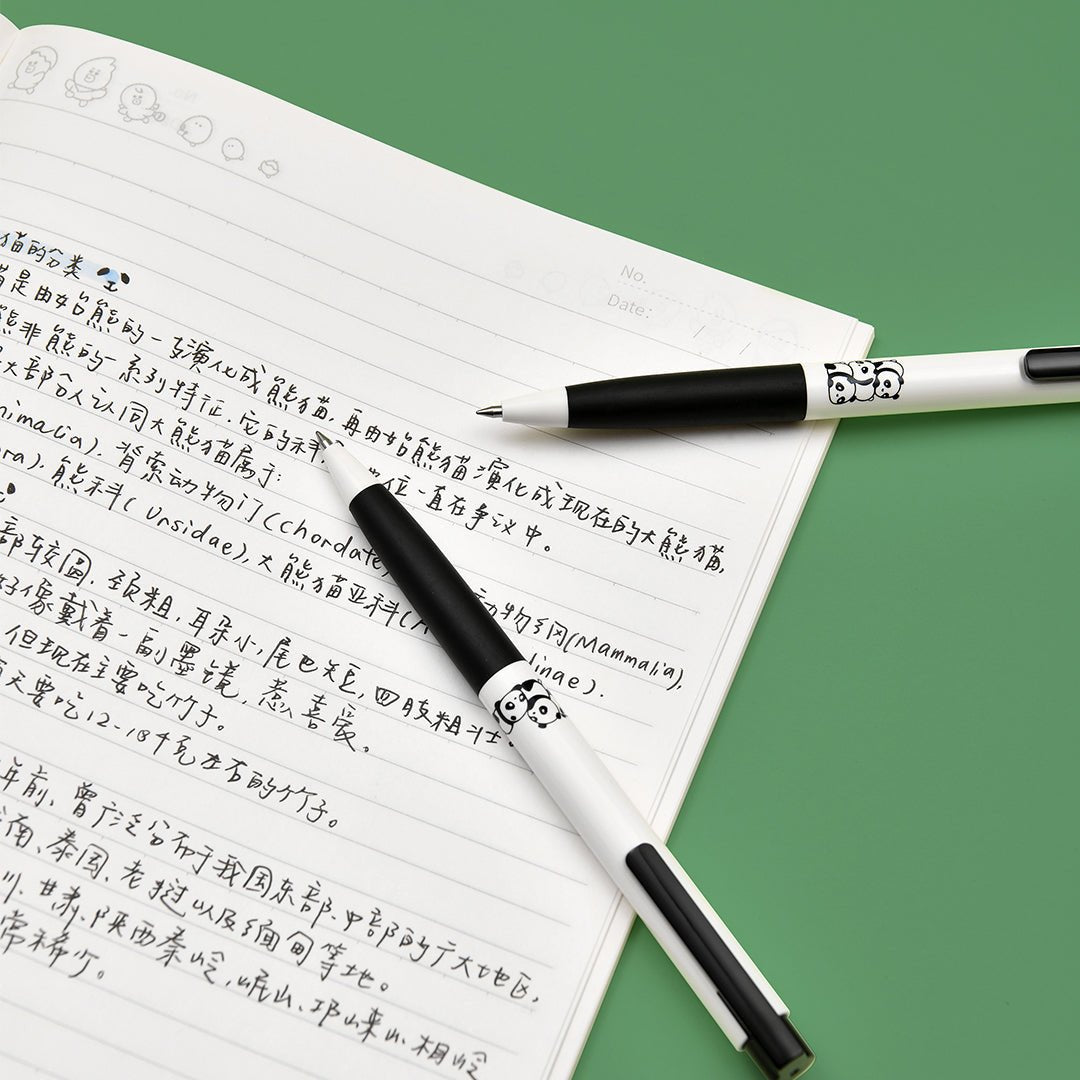 No.
Date: / /
猫的分类
猫是由始熊的一支演化成熊猫,再由始熊猫演化成现在的大熊猫,
熊非熊的一系列特征,它的科 位一直在争议中。
大部分人认同大熊猫属于:
nimalia),脊索动物门(Chordate 动物纲(Mammalia),
ora),熊科(Ursidae),大熊猫亚科(A linae).
部较圆,颈粗,耳朵小,尾巴短,四肢粗壮,
好像戴着一副墨镜,惹喜爱。
但现在主要吃竹子。
天要吃12-18千克左右的竹子。
年前,曾广泛分布于我国东部、中部的广大地区,
南、泰国、老挝以及缅甸等地。
川、甘肃、陕西秦岭,岷山、邛崃山、相岭
常稀少。